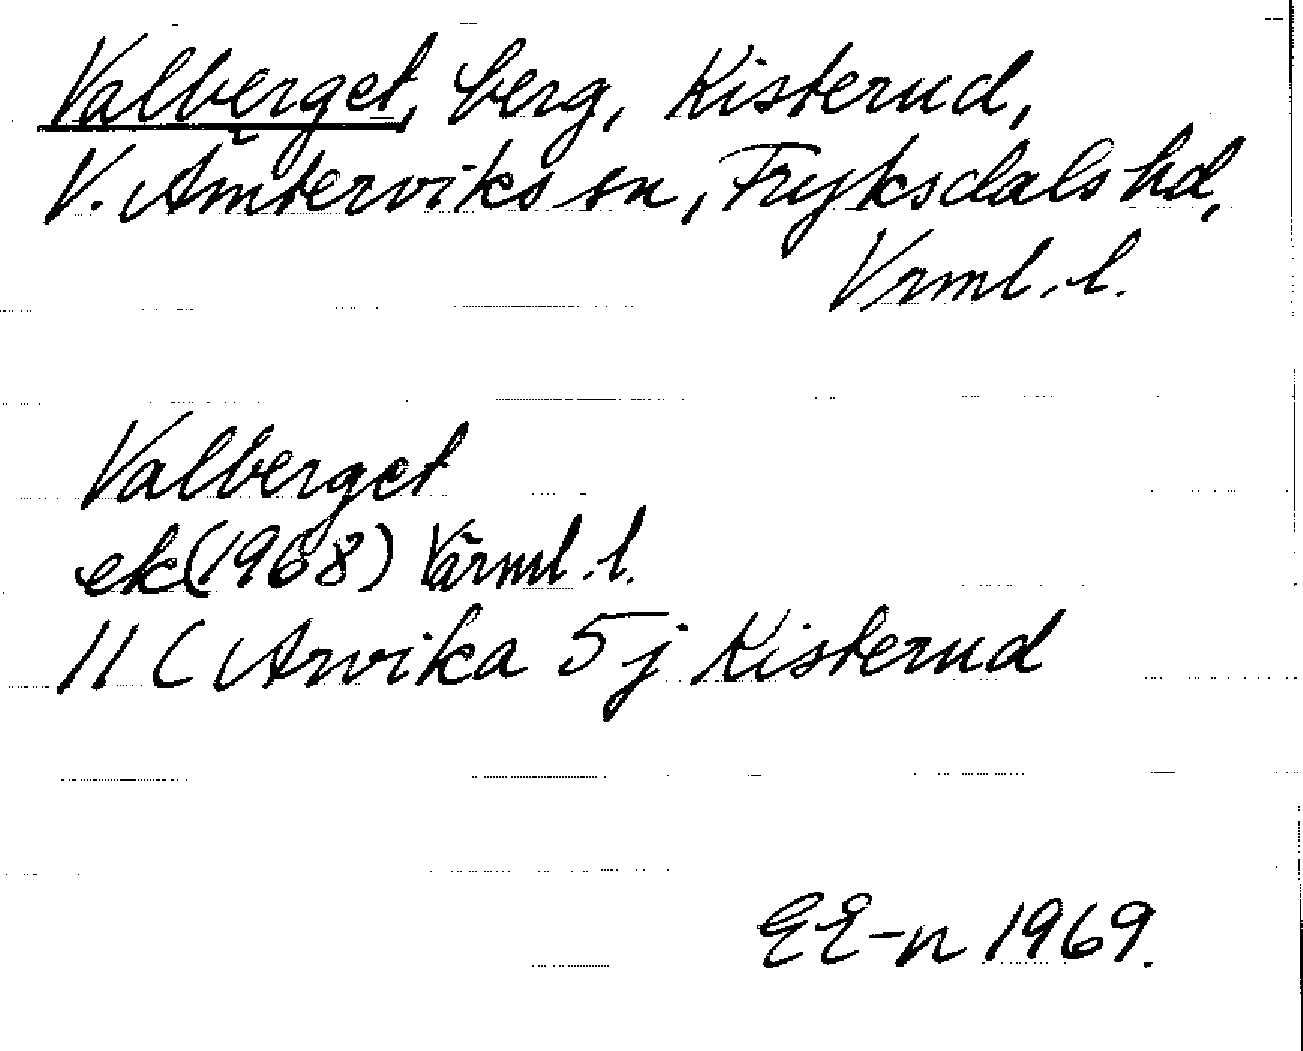 Valberget, berg, Kisterud,
V. Ämterviks sn, Fryksdals hd,
Vrml. l.
Valberget
ek (1968) Värml. l.
11 C Arvika 5 j Kisterud
EE-n 1969.